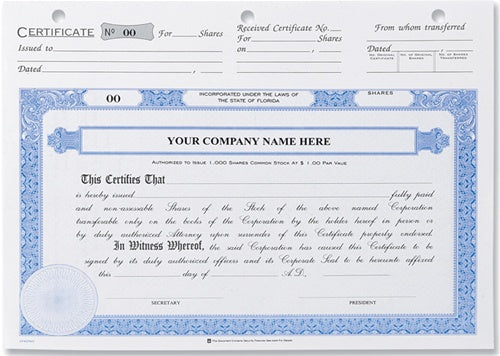 CERTIFICATE No 00 For Shares
Issued to
Dated
Received Certificate No.
For Shares
on
From whom transferred
Dated
NO. ORIGINAL CERTIFICATE
NO. OF ORIGINAL SHARES
NO. OF SHARES TRANSFERRED
00
INCORPORATED UNDER THE LAWS OF
THE STATE OF FLORIDA
SHARES
YOUR COMPANY NAME HERE
AUTHORIZED TO ISSUE 1,000 SHARES COMMON STOCK AT $ 1.00 PAR VALUE
This Certifies That
is hereby issued fully paid
and non-assessable Shares of the Stock of the above named Corporation
transferable only on the books of the Corporation by the holder hereof in person or
by duly authorized Attorney upon surrender of this Certificate properly endorsed.
In Witness Whereof, the said Corporation has caused this Certificate to be
signed by its duly authorized officers and its Corporate Seal to be hereunto affixed
this day of A.D.
SECRETARY
PRESIDENT